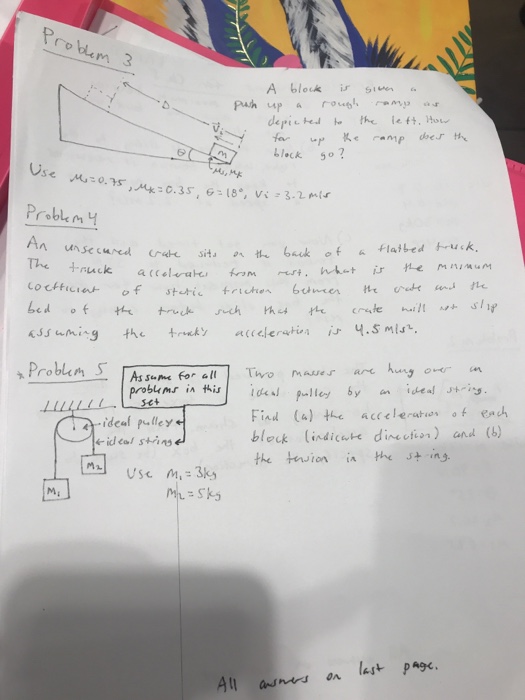 Problem 3
A block is given a
push up a rough ramp as
depicted to the left. How
far up the ramp does the
block go?
D
Vi
θ
m
μs, μk
Use μs=0.75, μk=0.35, θ=18°, Vi=3.2m/s
Problem 4
An unsecured crate sits on the back of a flatbed truck.
The truck accelerates from rest. What is the minimum
coefficient of static friction between the crate and the
bed of the truck such that the crate will not slip
assuming the truck's acceleration is 4.5m/s².
* Problem 5
Assume for all
problems in this
set
ideal pulley
ideal string
M2
M1
Use M1=3kg
M2=5kg
Two masses are hung over an
ideal pulley by an ideal string.
Find (a) the acceleration of each
block (indicate direction) and (b)
the tension in the string.
All answers on last page.